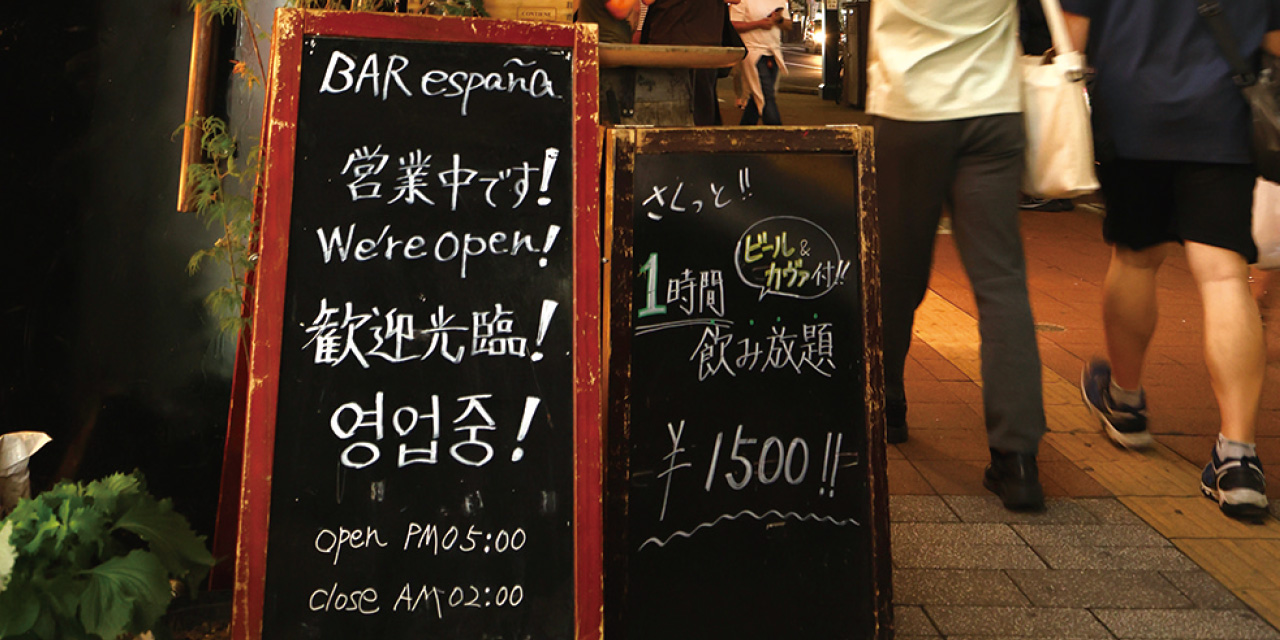 BAR españa
営業中です!
We're open!
歓迎光臨!
영업중!
open PM05:00
close AM02:00
さくっと!!
ビール &
カヴァ付!!
1時間
飲み放題
¥1500!!